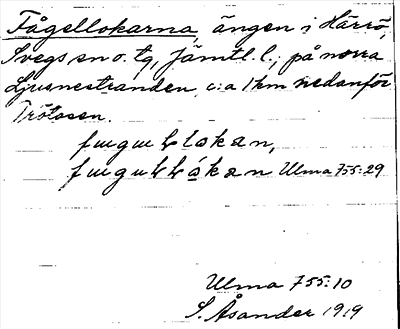 Fågellokarna, ängen i Härrö,
Svegs sn o. tg, Jämtl. l.; på norra
Ljusnestranden c:a 1 km nedanför
Trötosen.
Ulma 755:29
Ulma 755:10
S. Åsander 1919